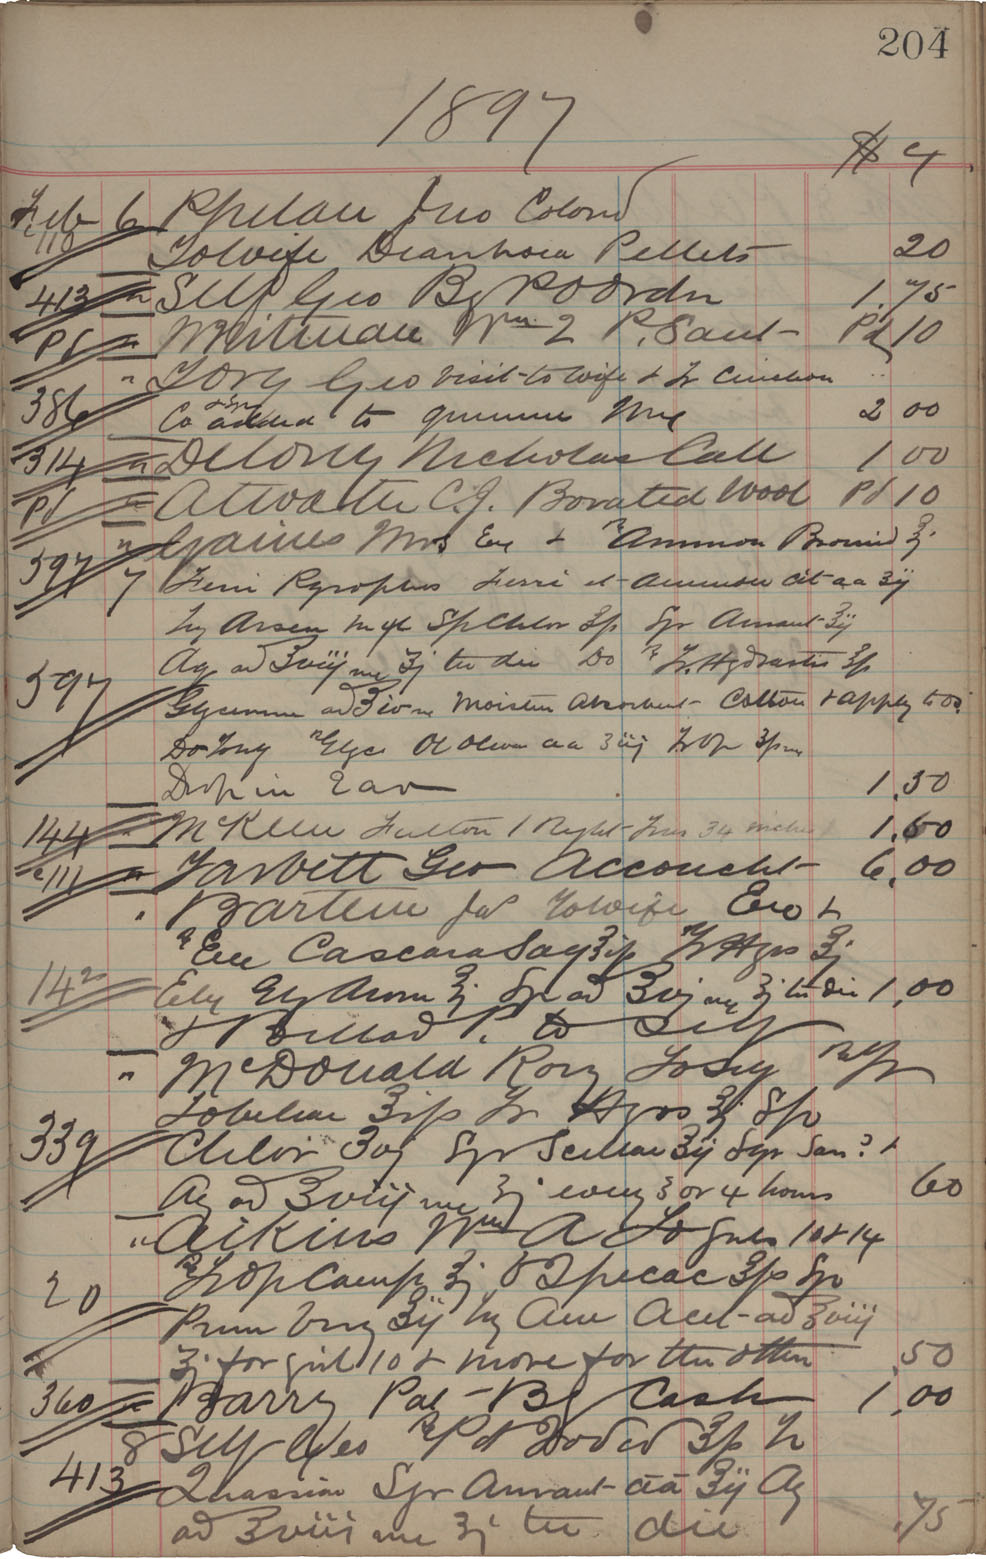 204
1897
$ c
Feb 6 Phelan Jno Colond
c 110 To Wife Diarrhoea Pellets 20
413 " Self Geo By PO Order 1.75
Pd " Whitman Wm 2 P. Sant Pd 10
" Tory Geo visit to wife & Tr Cinchon
386 Co added to quinine Mix 2 00
314 " Delory Nicholas Call 1 00
Pd " Atwater C.J. Borated Wool Pd 10
" Gaines Mrs Exe & ℞ Ammon Bromid ℥j
597 7 Ferri Pyrophos Ferri et Ammon cit aa ʒij
Sp Chlor ʒp Syr Aurant ℥ij
Aq ad ℥viij me ʒj ter die Do ℞ Tr. Hydrastis ʒp
597 Glycerine ad ℥iv me Moisten Absorbent Cotton & apply to
Do ℞ Glyc Ol Oliva aa ʒiij Tr Op ʒp me
Drop in Ear 1.50
144 " McKeen Fulton 1 Right Trus 34 inches 1.50
c 111 " Tarbett Geo Accoucht 6.00
" Jas To Wife Exe &
℞ Exe Cascara Sag ʒip ℞ Tr Hyos ʒj
142 Elix Gly Arom ℥j Syr ad ℥vj me ʒj ter die 1.00
& Bellad P. to Self
" McDonald Rory To Self ℞ Tr
Lobeliae ʒip Tr Hyos ʒj Sp
339 Chlor Syr Scillae ℥ij Syr
Aq ad ℥viij me ʒj every 3 or 4 hours 60
" Aikins Wm A To girls 10 & 14
℞ Tr Op Camp ℥j V Ipecac ʒp Syr
20 Prun Virg ℥ij Liq Am Acet ad ℥viij
ʒj for girl 10 & more for the other .50
360 " Barry Pat By Cash 1.00
8 Self Geo ℞ Pot Iodid ʒp Tr
413 Quassia Syr Aurant aa ℥ij Aq
ad ℥viij me ʒj ter die .75